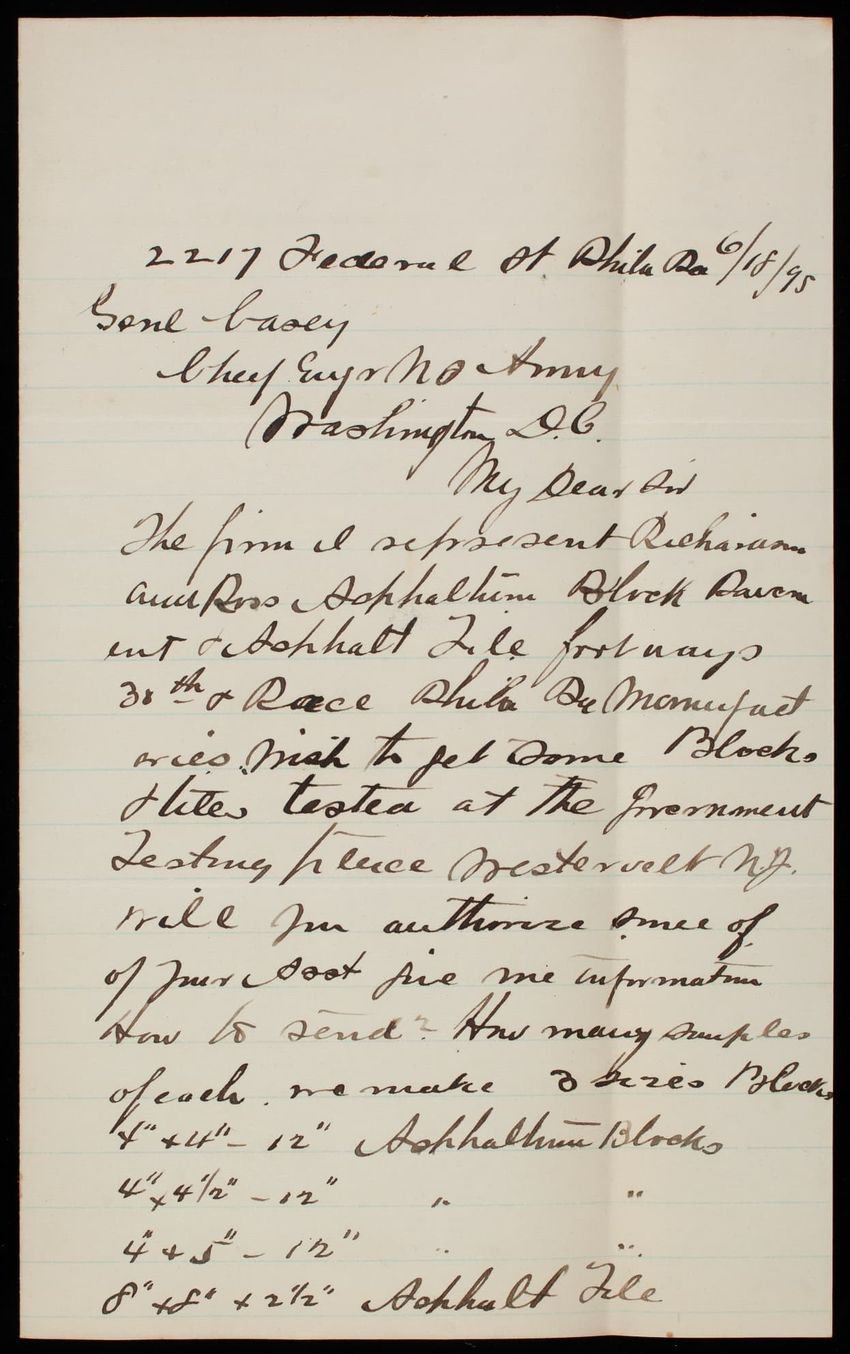 2217 Federal St. Phila Pa 6/18/95
Genl Casey
Chief Engr U S Army
Washington D.C.
My Dear Sir
The firm I represent Richardson
and Ross Asphaltum Block Pavem
ent & Asphalt Tile footways
30th & Race Phila Pa Manufact
ories. Wish to get some Blocks
& tiles tested at the Government
Testing place Westervelt N.J.
will you authorize some of
of your Asst give me information
How to send? How many samples
of each. we make 3 sizes Blocks
4" x 4" - 12" Asphaltum Blocks
4" x 4 1/2" - 12" " "
4" x 5" - 12" " "
8" x 8" x 2 1/2" Asphalt Tile